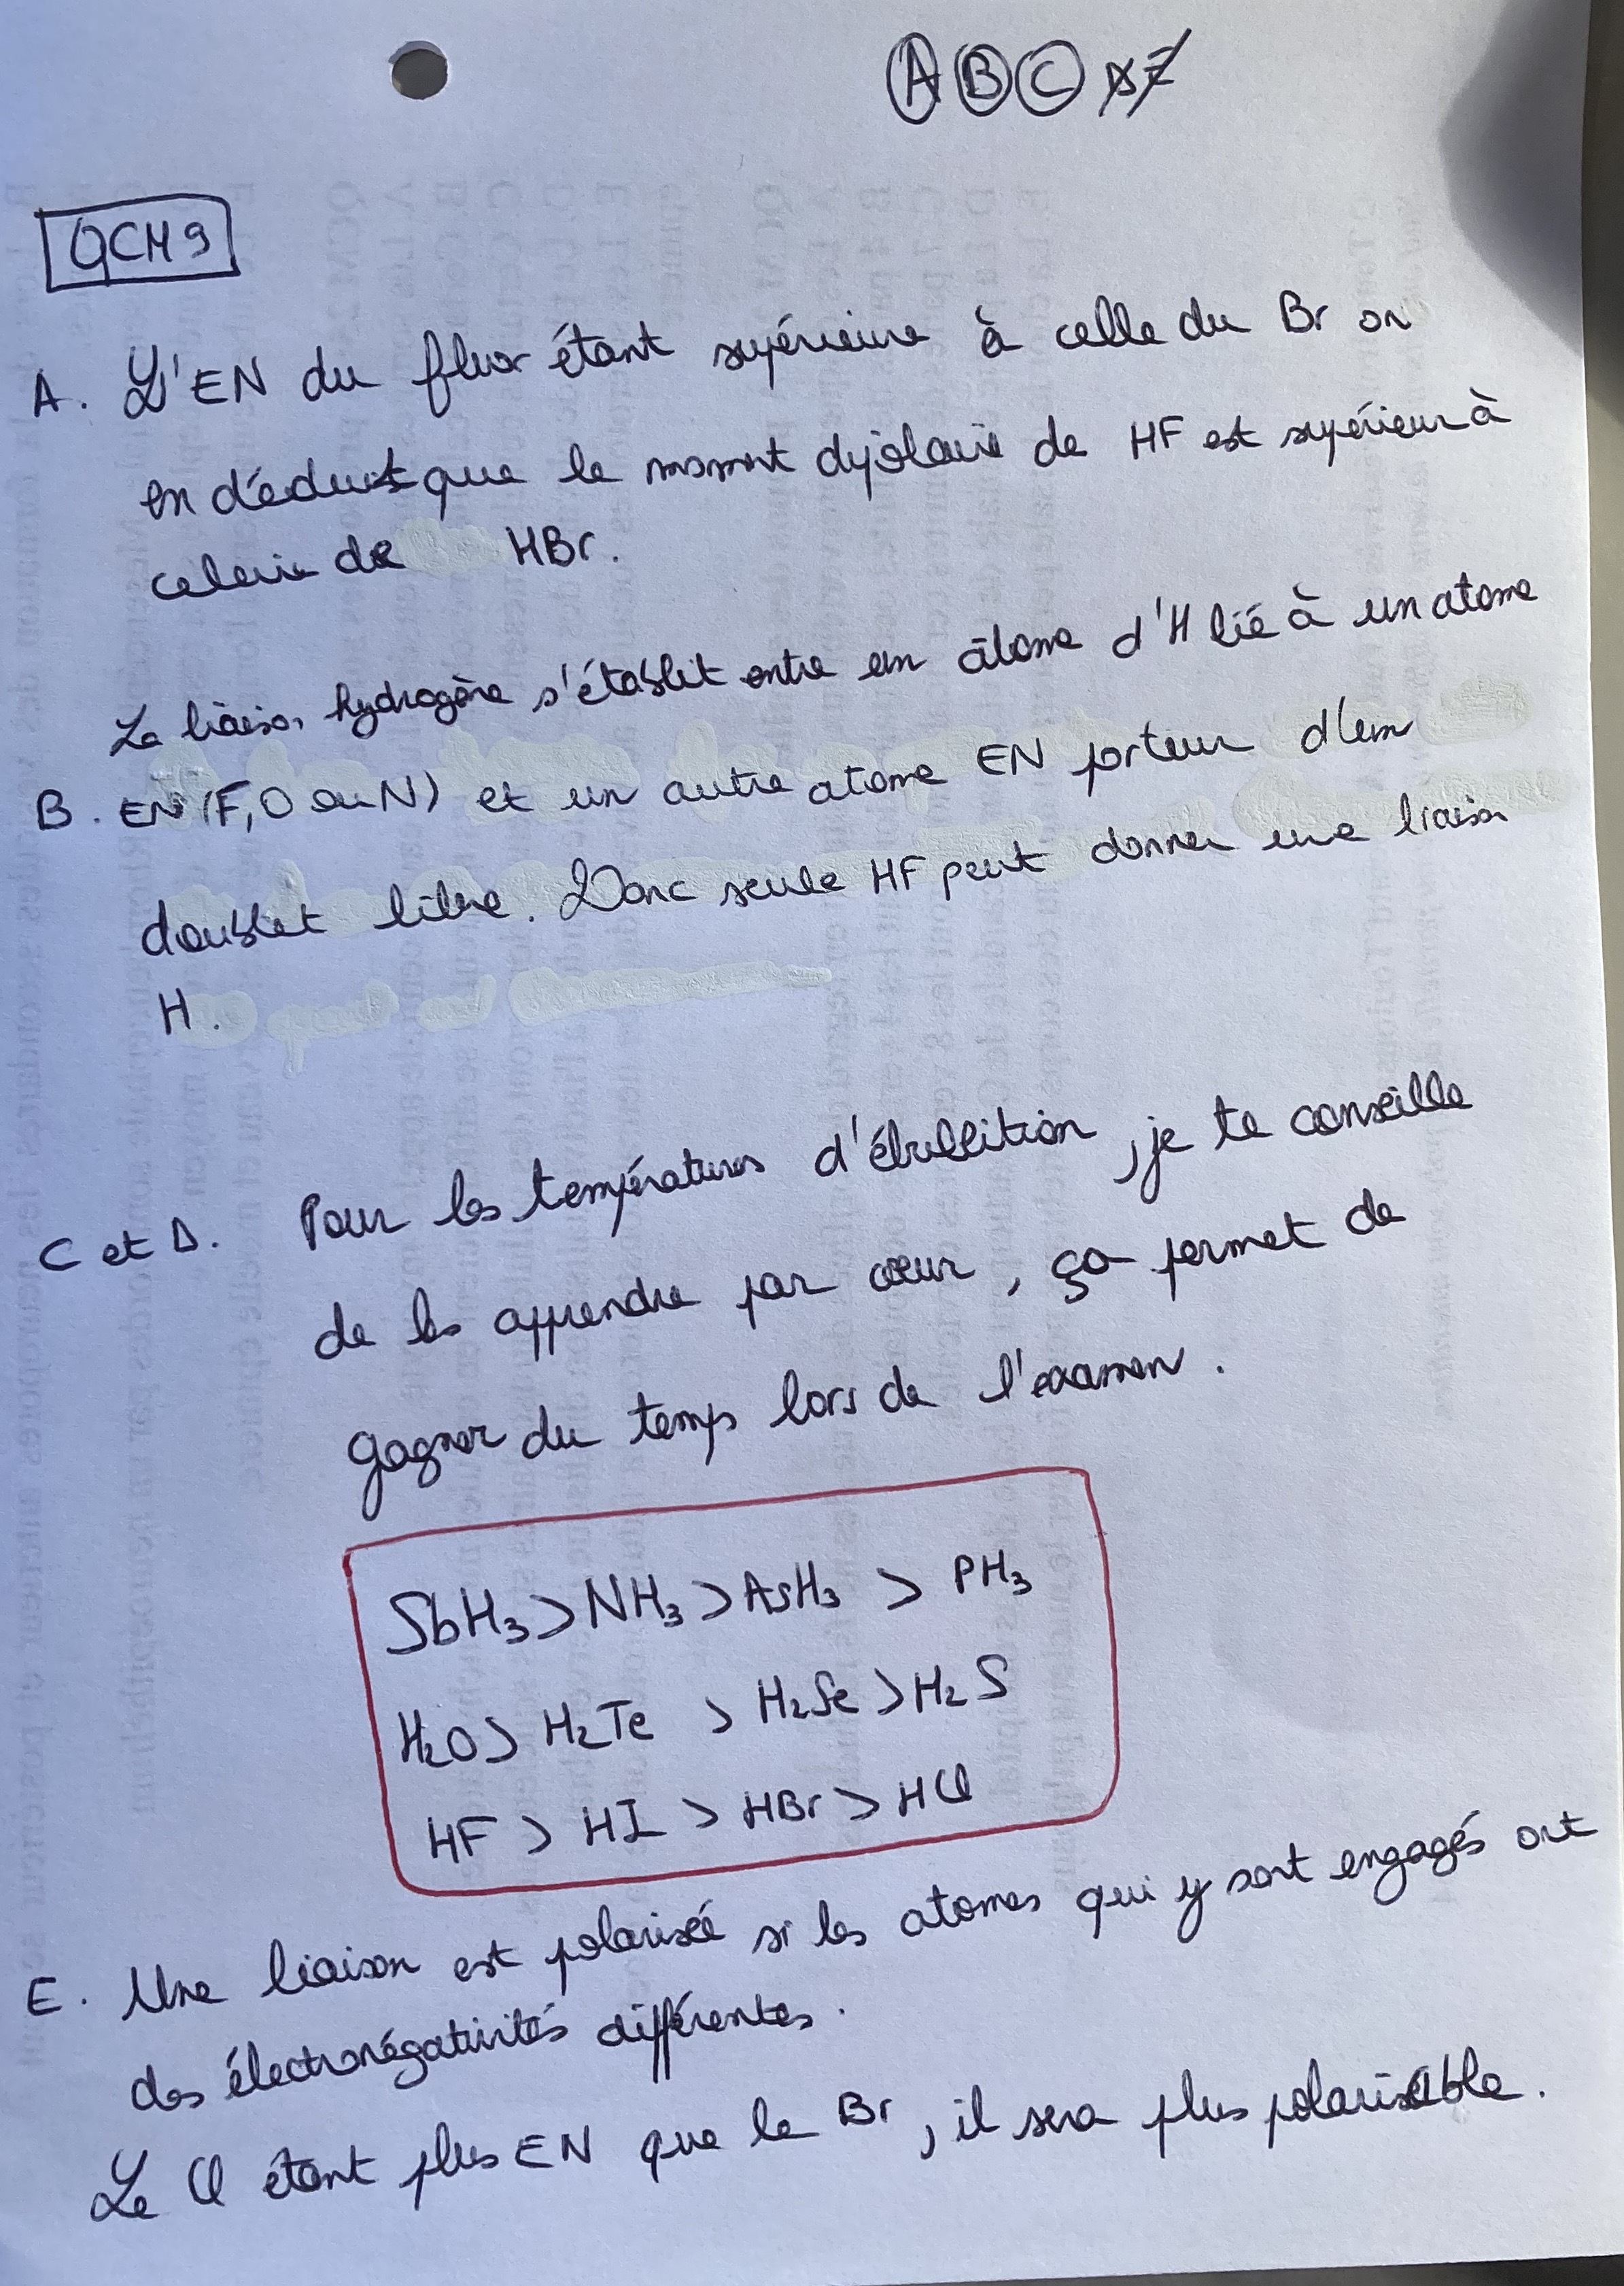 A B C D E
QCM 9
A. L'EN du fluor étant supérieure à celle du Br on
en déduit que le moment dipolaire de HF est supérieur à
celui de HBr.
La liaison hydrogène s'établit entre un atome d'H lié à un atome
B. EN (F, O ou N) et un autre atome EN porteur d'un
doublet libre. Donc seule HF peut donner une liaison
H.
C et D. Pour les températures d'ébullition, je te conseille
de les apprendre par cœur, ça permet de
gagner du temps lors de l'examen.
SbH₃ > NH₃ > AsH₃ > PH₃
H₂O > H₂Te > H₂Se > H₂S
HF > HI > HBr > HCl
E. Une liaison est polarisée si les atomes qui y sont engagés ont
des électronégativités différentes.
Le Cl étant plus EN que le Br, il sera plus polarisable.